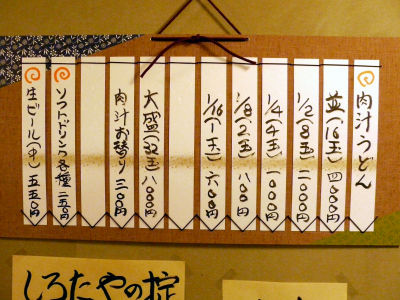 肉汁うどん
並(16玉) 四〇〇〇円
1/2(8玉) 二〇〇〇円
1/4(4玉) 一〇〇〇円
1/8(2玉) 八〇〇円
1/16(1玉) 六〇〇円
大盛(32玉) 八〇〇〇円
肉汁お替り 三〇〇円
ソフトドリンク各種 二五〇円
生ビール(中) 五五〇円
しろたやの掟